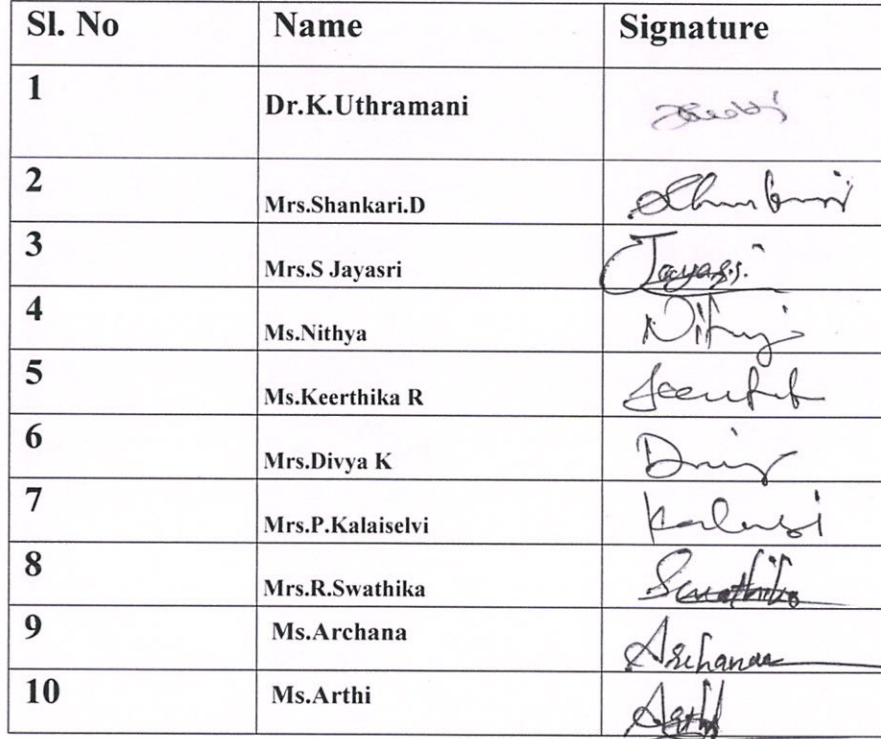 Sl. No Name Signature
1 Dr.K.Uthramani
2 Mrs.Shankari.D
3 Mrs.S Jayasri Jayasri
4 Ms.Nithya
5 Ms.Keerthika R
6 Mrs.Divya K
7 Mrs.P.Kalaiselvi
8 Mrs.R.Swathika Swathika
9 Ms.Archana Archana
10 Ms.Arthi